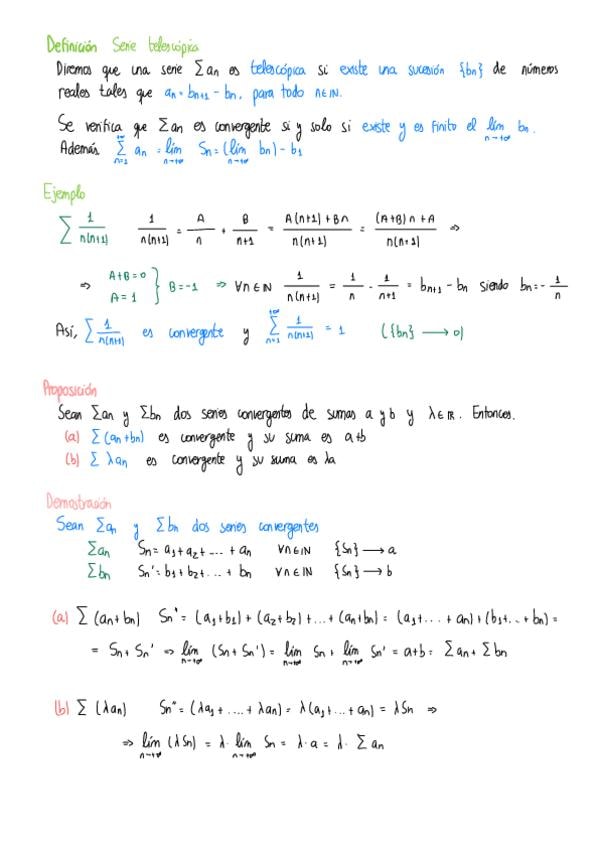 Definición Serie telescópica
Diremos que una serie ∑an es telescópica si existe una sucesión {bn} de números
reales tales que an = bn+1 - bn, para todo n∈ℕ.
Se verifica que ∑an es convergente si y solo si existe y es finito el lím n→+∞ bn.
Además ∑ n=1 +∞ an = lím n→+∞ Sn = (lím n→+∞ bn) - b1
Ejemplo
∑ 1/n(n+1) 1/n(n+1) = A/n + B/n+1 = A(n+1)+Bn/n(n+1) = (A+B)n+A/n(n+1) ⇒
⇒ A+B=0 A=1 } B=-1 ⇒ ∀n∈ℕ 1/n(n+1) = 1/n - 1/n+1 = bn+1 - bn siendo bn = - 1/n
Así, ∑ 1/n(n+1) es convergente y ∑ n=1 +∞ 1/n(n+1) = 1 ({bn} ⟶ 0)
Proposición
Sean ∑an y ∑bn dos series convergentes de sumas a y b y λ∈ℝ. Entonces.
(a) ∑(an+bn) es convergente y su suma es a+b
(b) ∑ λan es convergente y su suma es λa
Demostración
Sean ∑an y ∑bn dos series convergentes
∑an Sn = a1+a2+...+an ∀n∈ℕ {Sn} ⟶ a
∑bn Sn' = b1+b2+...+bn ∀n∈ℕ {Sn'} ⟶ b
(a) ∑(an+bn) Sn" = (a1+b1)+(a2+b2)+...+(an+bn) = (a1+...+an)+(b1+...+bn) =
= Sn+Sn' ⇒ lím n→+∞ (Sn+Sn') = lím n→+∞ Sn + lím n→+∞ Sn' = a+b = ∑an + ∑bn
(b) ∑(λan) Sn" = (λa1+....+λan) = λ(a1+...+an) = λSn ⇒
⇒ lím n→+∞ (λSn) = λ· lím n→+∞ Sn = λ·a = λ· ∑an